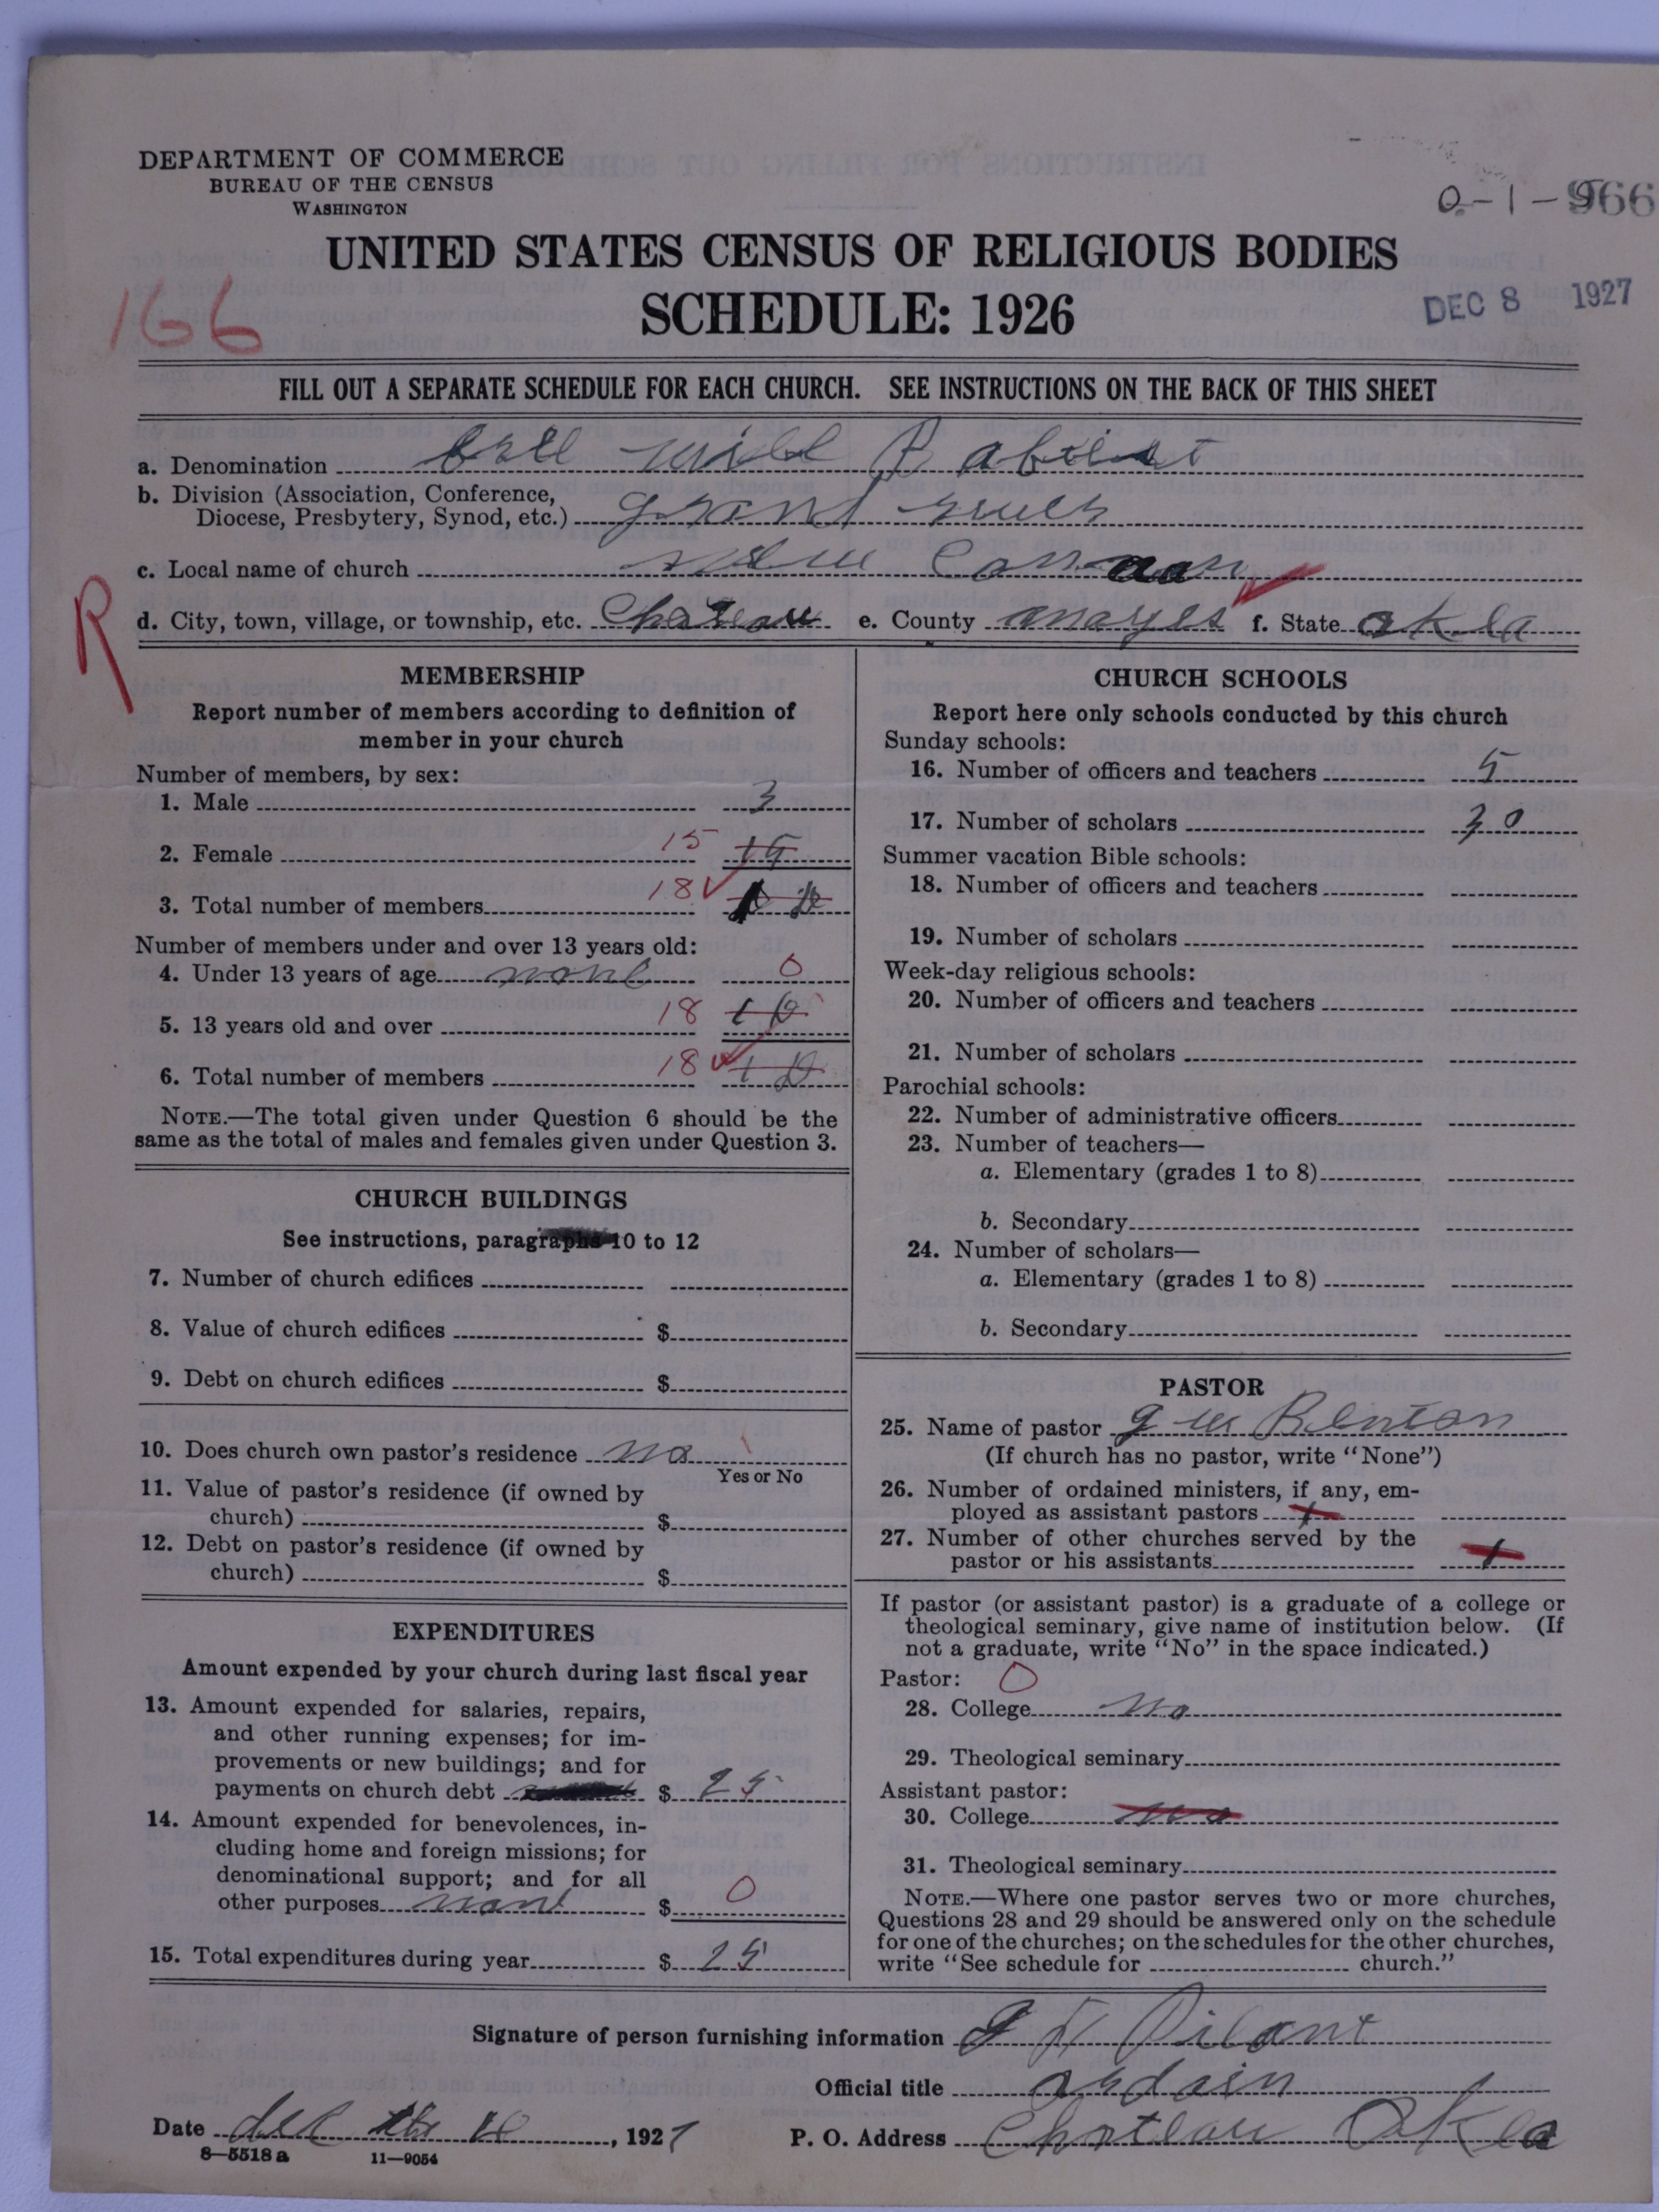 DEPARTMENT OF COMMERCE
BUREAU OF THE CENSUS
WASHINGTON
0-1-966
UNITED STATES CENSUS OF RELIGIOUS BODIES
SCHEDULE: 1926
166
DEC 8 1927
FILL OUT A SEPARATE SCHEDULE FOR EACH CHURCH. SEE INSTRUCTIONS ON THE BACK OF THIS SHEET
a. Denomination will
b. Division (Association, Conference,
Diocese, Presbytery, Synod, etc.) grand
c. Local name of church new Canaan
R
d. City, town, village, or township, etc. e. County mayes f. State okla
MEMBERSHIP
Report number of members according to definition of
member in your church
Number of members, by sex:
1. Male 3
2. Female 15 15
3. Total number of members 18
Number of members under and over 13 years old:
4. Under 13 years of age none 0
5. 13 years old and over 18
6. Total number of members 18
NOTE.—The total given under Question 6 should be the
same as the total of males and females given under Question 3.
CHURCH BUILDINGS
See instructions, paragraphs 10 to 12
7. Number of church edifices
8. Value of church edifices $
9. Debt on church edifices $
10. Does church own pastor's residence no
Yes or No
11. Value of pastor's residence (if owned by
church) $
12. Debt on pastor's residence (if owned by
church) $
EXPENDITURES
Amount expended by your church during last fiscal year
13. Amount expended for salaries, repairs,
and other running expenses; for im-
provements or new buildings; and for
payments on church debt $ 25
14. Amount expended for benevolences, in-
cluding home and foreign missions; for
denominational support; and for all
other purposes none $ 0
15. Total expenditures during year $ 25
CHURCH SCHOOLS
Report here only schools conducted by this church
Sunday schools:
16. Number of officers and teachers 5
17. Number of scholars 30
Summer vacation Bible schools:
18. Number of officers and teachers
19. Number of scholars
Week-day religious schools:
20. Number of officers and teachers
21. Number of scholars
Parochial schools:
22. Number of administrative officers
23. Number of teachers—
a. Elementary (grades 1 to 8)
b. Secondary
24. Number of scholars—
a. Elementary (grades 1 to 8)
b. Secondary
PASTOR
25. Name of pastor
(If church has no pastor, write "None")
26. Number of ordained ministers, if any, em-
ployed as assistant pastors 1
27. Number of other churches served by the
pastor or his assistants 1
If pastor (or assistant pastor) is a graduate of a college or
theological seminary, give name of institution below. (If
not a graduate, write "No" in the space indicated.)
Pastor: 0
28. College no
29. Theological seminary
Assistant pastor:
30. College no
31. Theological seminary
NOTE.—Where one pastor serves two or more churches,
Questions 28 and 29 should be answered only on the schedule
for one of the churches; on the schedules for the other churches,
write "See schedule for church."
Signature of person furnishing information
Official title
Date dec , 1927 P. O. Address Okla
8—5518a 11—9054